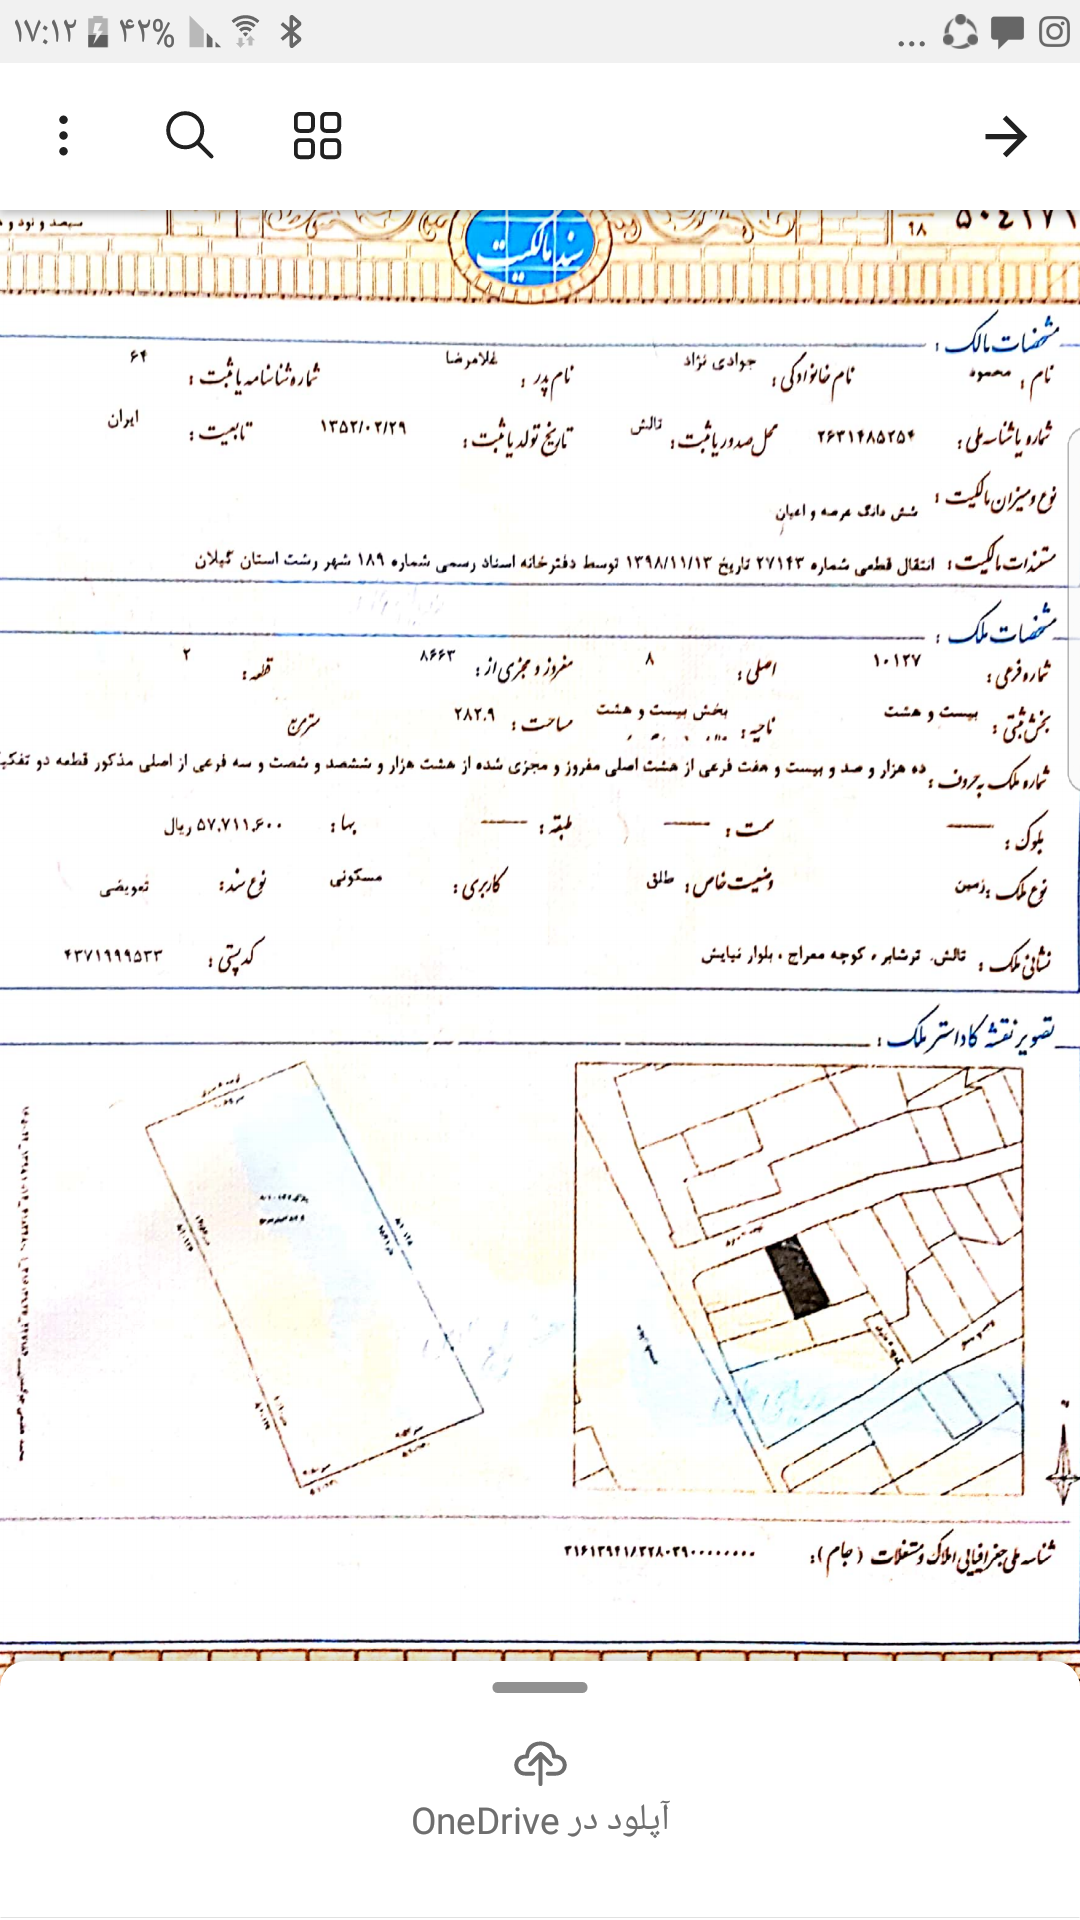 ۱۷:۱۲ ۴۲%
۵۰٤۱۷۱
۹۸
سند مالکیت
سیصد و نود و
مشخصات مالک :
نام : محمود نام خانوادگی : جوادی نژاد نام پدر : غلامرضا شماره شناسنامه یا ثبت : ۶۴
شماره یا شناسه ملی : ۲۶۳۱۴۸۵۲۵۴ محل صدور یا ثبت : تالش تاریخ تولد یا ثبت : ۱۳۵۲/۰۲/۲۹ تابعیت : ایران
نوع و میزان مالکیت : شش دانگ عرصه و اعیان
مستندات مالکیت : انتقال قطعی شماره ۲۷۱۴۳ تاریخ ۱۳۹۸/۱۱/۱۳ توسط دفترخانه اسناد رسمی شماره ۱۸۹ شهر رشت استان گیلان
مشخصات ملک :
شماره فرعی : ۱۰۱۲۷ اصلی : ۸ مفروز و مجزی از : ۸۶۶۳ قطعه : ۲
بخش ثبتی : بیست و هشت ناحیه : بخش بیست و هشت مساحت : ۲۸۲.۹ متر مربع
شماره ملک به حروف : ده هزار و صد و بیست و هفت فرعی از هشت اصلی مفروز و مجزی شده از هشت هزار و ششصد و شصت و سه فرعی از اصلی مذکور قطعه دو
بلوک : —— سمت : —— طبقه : —— بها : ۵۷,۷۱۱,۶۰۰ ریال
نوع ملک : زمین وضعیت خاص : طلق کاربری : مسکونی نوع سند : تعویضی
نشانی ملک : تالش، ترشابر، کوچه معراج، بلوار نیایش کد پستی : ۴۳۷۱۹۹۹۵۳۳
تصویر نقشه کاداستر ملک :
شناسه ملی جغرافیایی املاک و مستغلات (جام):
آپلود در OneDrive